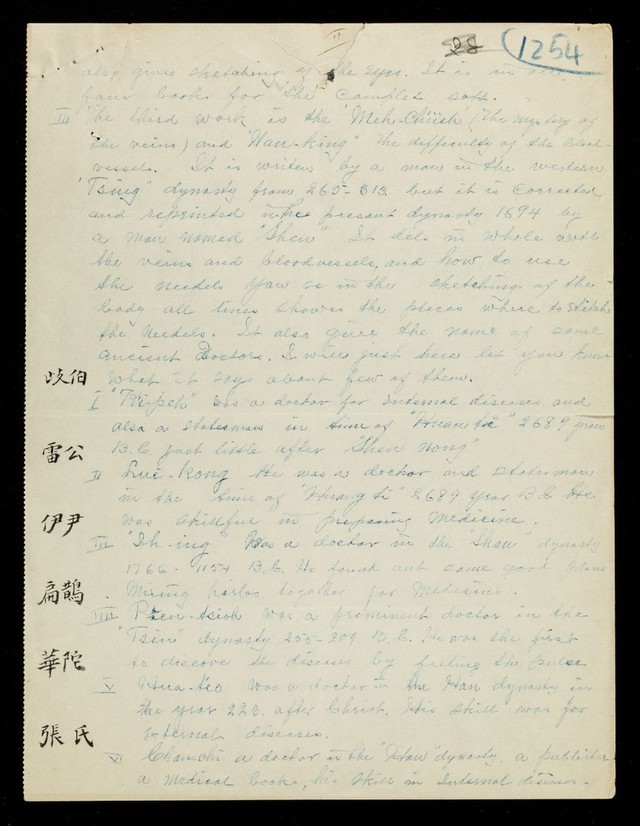 II
28
1254
also give sketching of the eyes. It is in all
four books for the complet sott.
III The third work is the "Meh-Chüeh (The mystery of
the veins) and "Nan-king" The difficulty of the blood-
vessels. It is writen by a man in the western
"Tsing" dynasty from 265-313 but it is corrected
and reprinted in the present dynasty 1694 by
a man named "Shen" It dels in whole with
the veins and bloodvessels, and how to use
the needels You se in the sketching of the
body all times shower the places where to stitch
the needels. It also give the name of some
ancient Doctors. I will just here let you know
what it says about few of them.
岐伯
I "Tri-peh" was a doctor for internal diseases and
also a statesman in time of "Huan ti" 2689 year
B.C. just little after "Shen Nong"
雷公
II Lui-kong He was a doctor and statesman
in the time of "Huang ti" 2689 year B.C. He
was skillful in preparing medicine.
伊尹
III "Ih-ing" Was a doctor in the "Shaw" dynasty
1766-1154 B.C. He found out some good
Mixing herbs together for Medicine.
扁鵲
IIII Pien-tsioh was a prominent doctor in the
"Tsin" dynasty 255-209 B.C. He was the first
to discover the disease by feeling the pulse
華陀
V Hua-to was a doctor in the Han dynasty in
the year 228 after Christ. His skill was for
external diseases.
張氏
VI Chanchi a doctor in the "Haw" dynasty, a publisher
a Medical books, his skill in internal diseases.